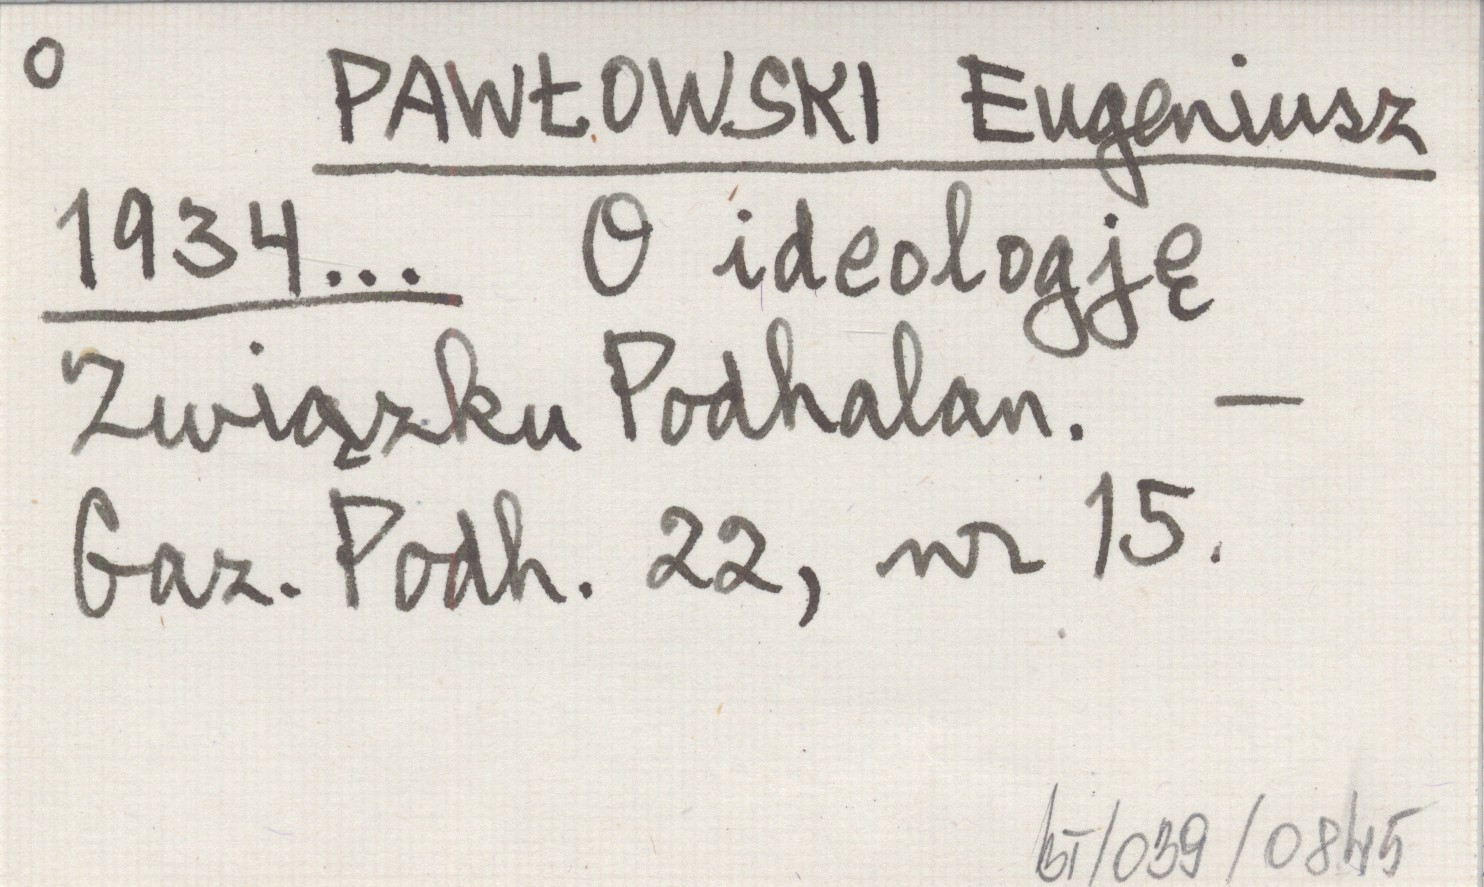 O PAWŁOWSKI Eugeniusz
1934... O ideologję
Związku Podhalan. —
Gaz. Podh. 22, nr 15.
/039/0845